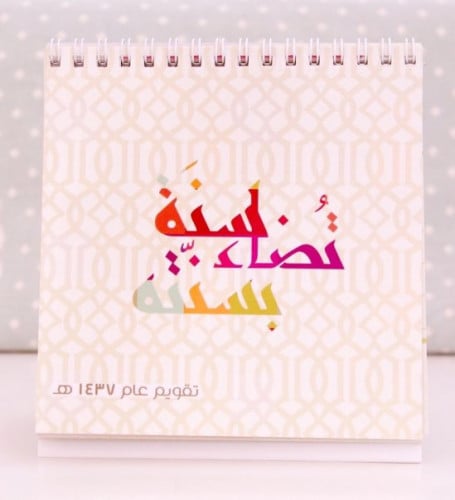 لسَنَة
تُضاء
بسنّة
تقويم عام ١٤٣٧ هـ